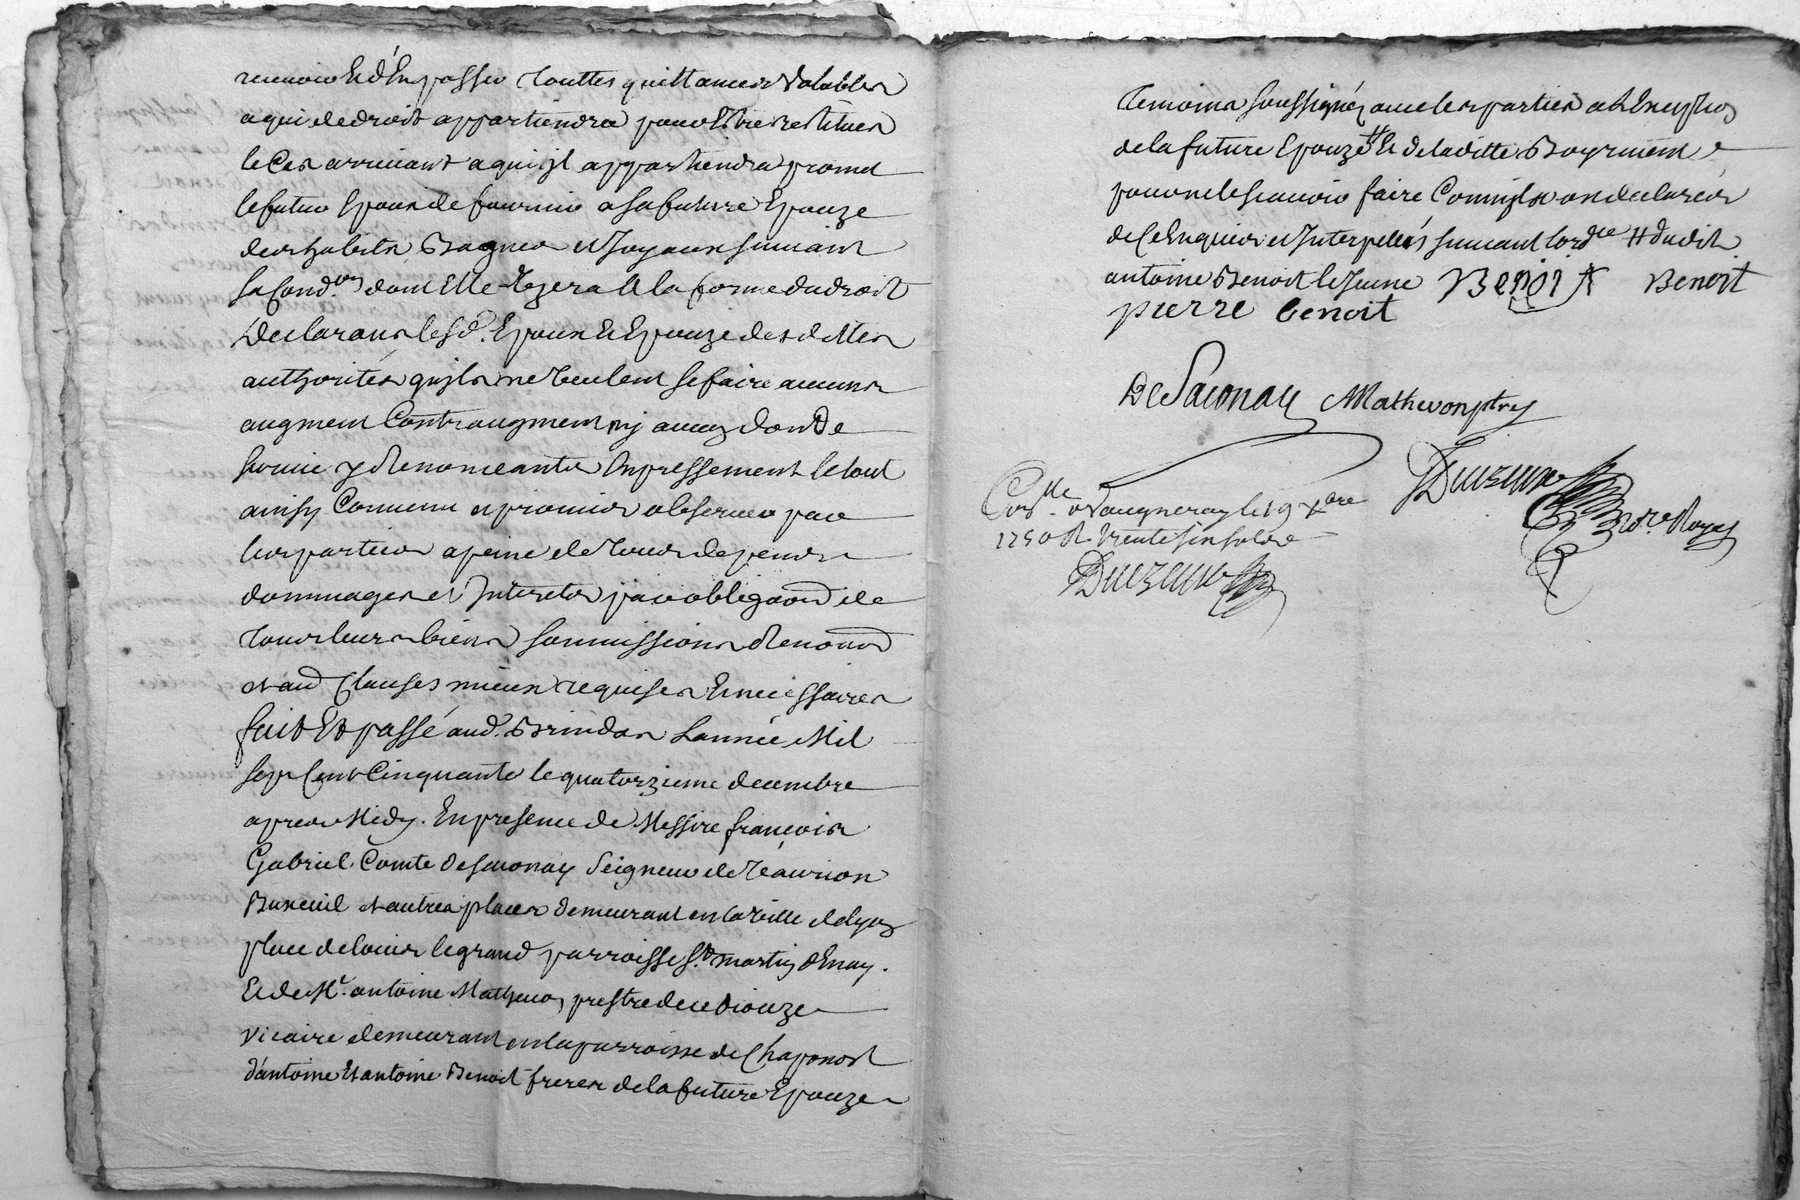 recevoir Et d'En passer touttes quittances Valables
a qui de droit appartiendra pour Etre restitues
le Cas arrivant a qui jl appartiendra promet
le futur Epoux de fournir a sa future Epouze
des habits Bagues et Joyaux suivant
sa Cond.on dont Elle Uzera a la forme du droit
Declarans lesd. Epoux Et Epouze des dittes
authorités qu'jls ne veulent se faire aucuns
augment Contraugment nj aucun don de
survie y Renonceants Expressement le tout
ainsy Convenu et promis observer par
les parties a peine de tous depens
dommages et Interets par obligaon de
tous leurs biens soumissions Renonon
et aud Clauses mieux requises Et necessaires
fait Et passé aud. Brindas L'année Mil
sept Cent Cinquante le quatorzieme decembre
apres Midy. En presence de Messire françois
Gabriel Comte de Saconay Seigneur de
Buneuil et autres places demeurant en la Ville de Lyon
place de Louis le grand parroisse St martin d'Enay.
Et de Mr. antoine Mathevon prestre de ce dioceze
Vicaire demeurant en la parroisse de Chaponost
d'antoine Et antoine Benoit freres de la future Epouze
temoins soussignéz avec les parties a l'Exception
de la future Epouze # Et de laditte Boyrivent
pour ne le scavoir faire Comm'jls ont declarées
de Ce Enquis et Interpelés suivant l'ord.ce # dudit
antoine Benoit le Jeune Benoit Benoit
pierre benoit
De Saconay Mathevon ptre
Duvzeuve
Con.lle a Vaugneray le 19 xbre
not.re Royal
1750 R. trente six sols
Duvzeuve